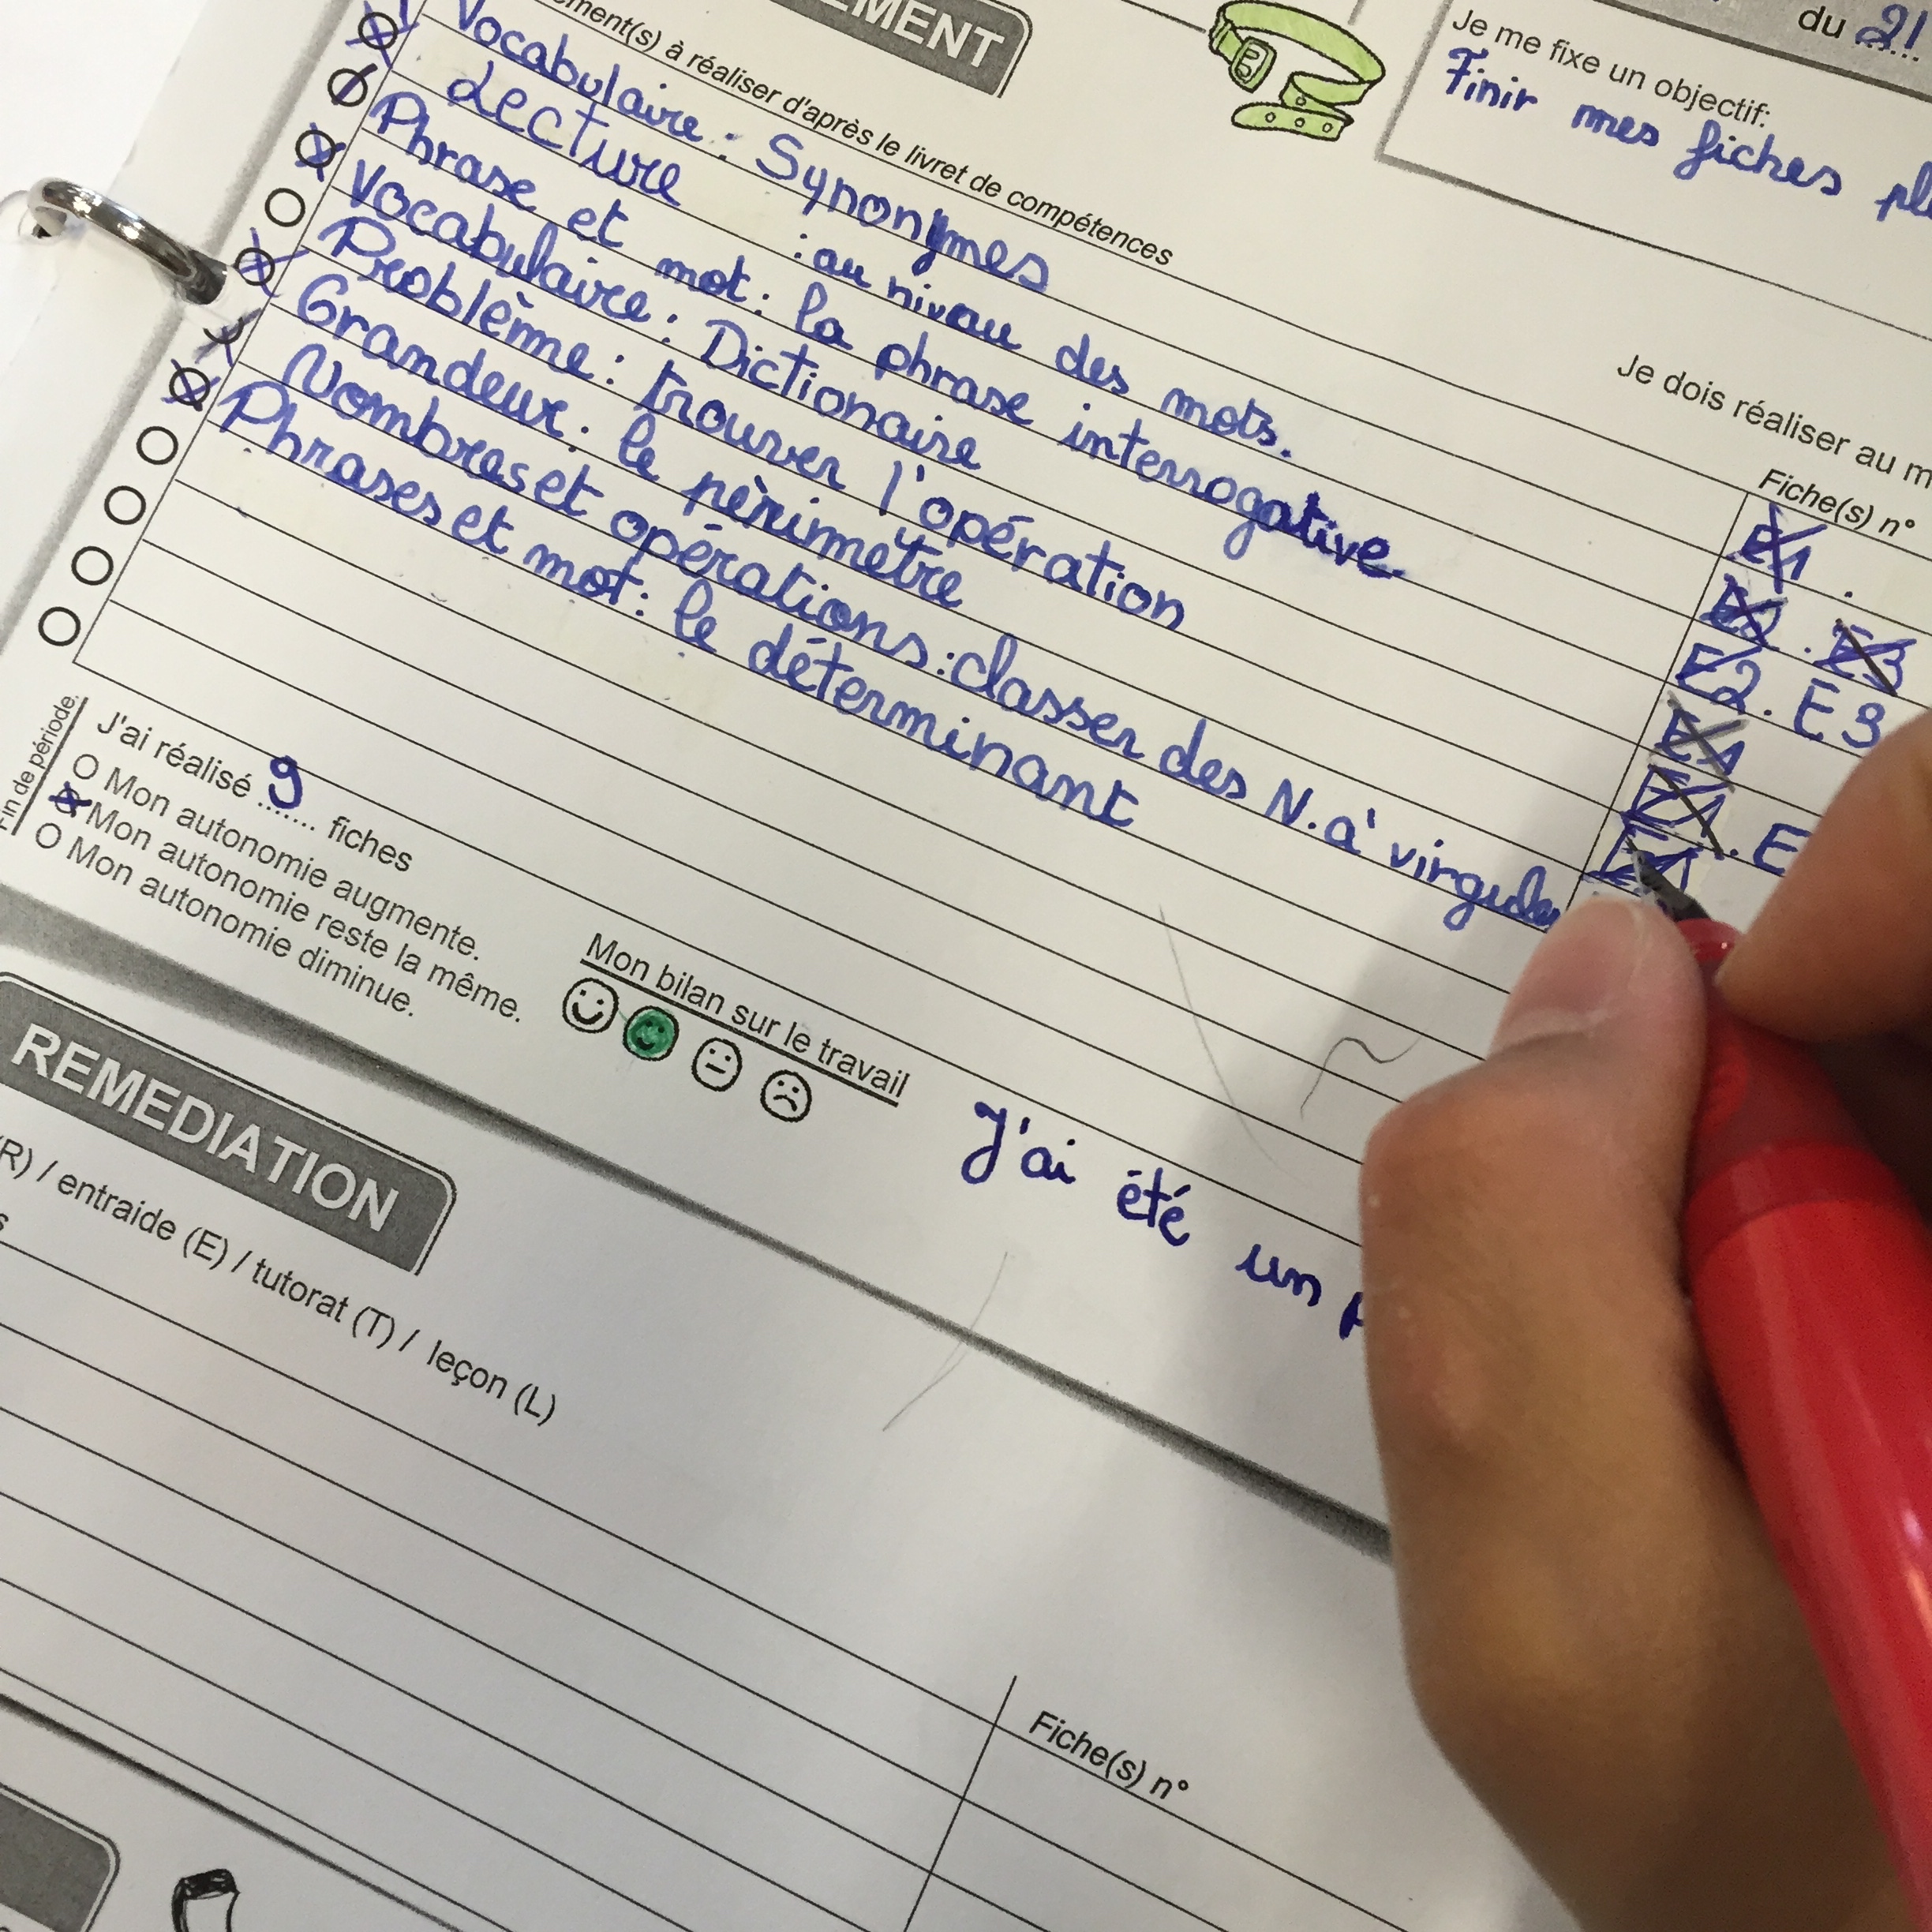 EMENT
ment(s) à réaliser d'après le livret de compétences
du 21
Je me fixe un objectif:
Finir mes fiches pl
Je dois réaliser au m
Fiche(s) n°
Vocabulaire : Synonymes
Lecture : au nivau des mots.
Phrase et mot : la phrase interrogative
Vocabulaire : Dictionaire
Problème : trouver l'opération
Grandeur : le périmètre
Nombres et opérations : classer des N. à virgule
Phrases et mot : le déterminant
E1 .
. E3
E2 . E3
E1
E1 . E
E1
Fin de période.
J'ai réalisé 9 fiches
Mon autonomie augmente.
Mon autonomie reste la même.
Mon autonomie diminue.
Mon bilan sur le travail
J'ai été un p
REMEDIATION
(R) / entraide (E) / tutorat (T) / leçon (L)
s
Fiche(s) n°